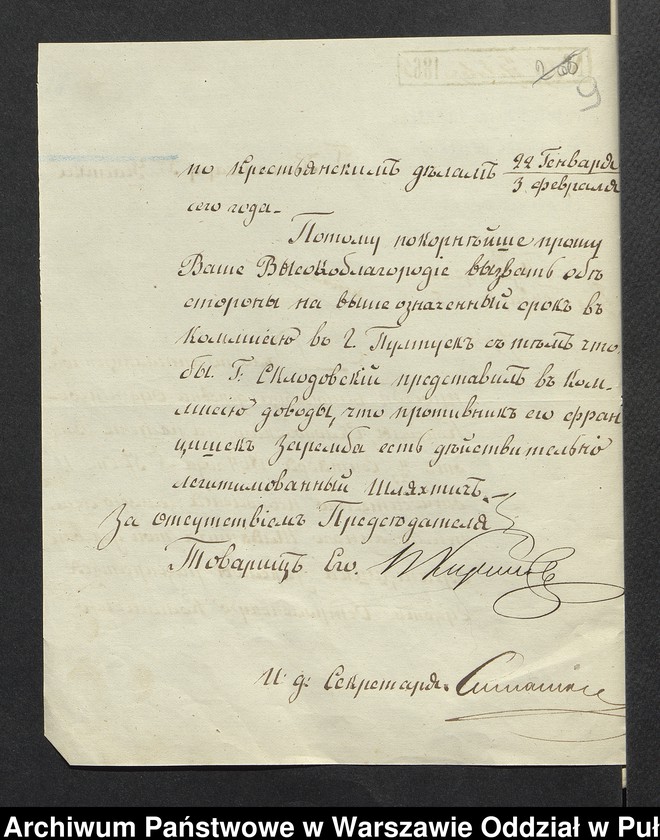 9
по Крестьянскимъ дѣламъ 22 Генваря
3 февраля
сего года.
Потому покорнѣйше прошу
Ваше Высокоблагородіе вызвать обѣ
стороны на вышеозначенный срокъ въ
Коммисію въ Г. Пултускъ съ тѣмъ что
бы Г. Склодовскій представилъ въ Ком-
мисію доводы, что противникъ его фран
цишекъ Заремба есть дѣйствительно
легитимованный Шляхтичъ.
За отсутствіемъ Предсѣдателя
Товарищъ Его.
И. д. Секретаря.
Archiwum Państwowe w Warszawie Oddział w Puł